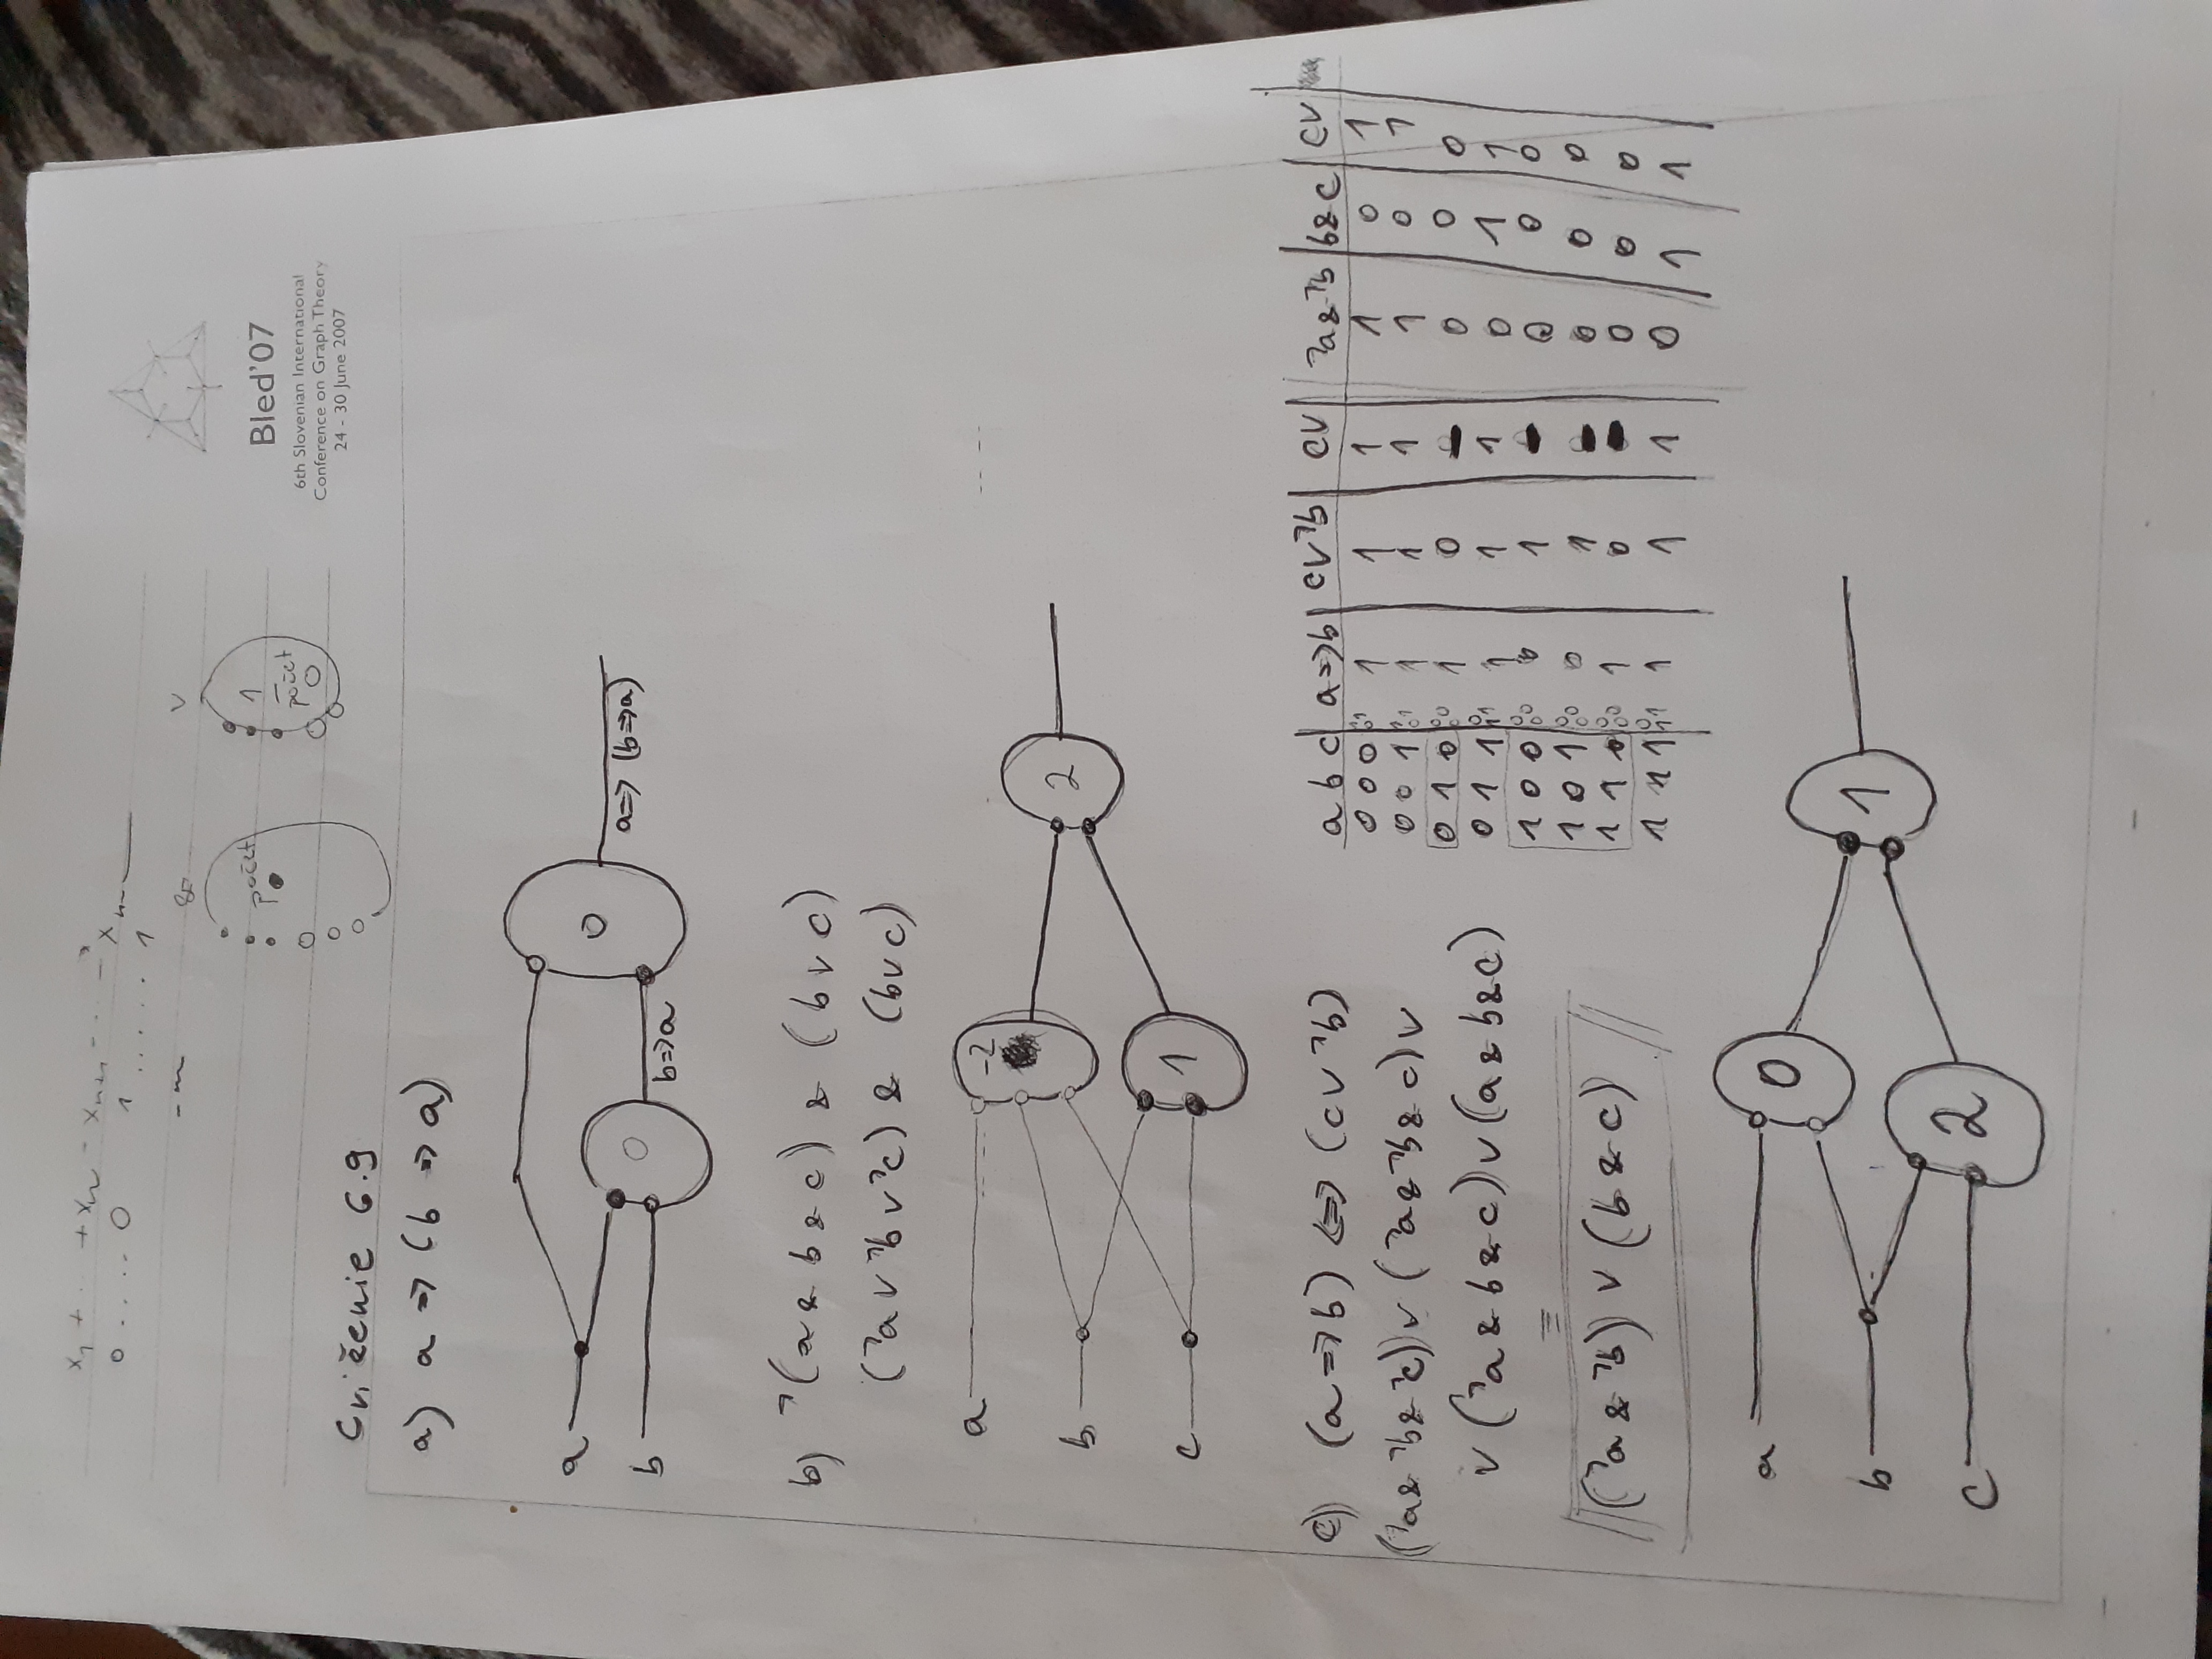 x₁ + ... + xₙ - xₙ₊₁ - ... - xₘ
0 .... 0 1 ..... 1
-m & v
počet ● 1 - počet ○
Bled'07
6th Slovenian International
Conference on Graph Theory
24 - 30 June 2007
Cvičenie 6.9
a) a => (b => a)
a
0
0
a=> (b=>a)
b
b=>a
b) ¬(a & b & c) & (b v c)
(¬a v ¬b v ¬c) & (b v c)
a
-2
b
2
c
1
c) (a => b) <=> (c v ¬b)
(¬a & ¬b & ¬c) v (¬a & ¬b & c) v
v (¬a & b & c) v (a & b & c)
=
(¬a & ¬b) v (b & c)
a b c a=>b cv¬b cv ¬a&¬b b&c cv
0 0 0 1 1 1 1 0 1
0 0 1 1 1 1 1 0 1
0 1 0 1 0 0 0 0
0 1 1 1 1 1 0 1 1
1 0 0 0 1 0 0 0
1 0 1 0 1 0 0 0
1 1 0 1 0 0 0 0
1 1 1 1 1 1 0 1 1
a
0
b
1
c
2